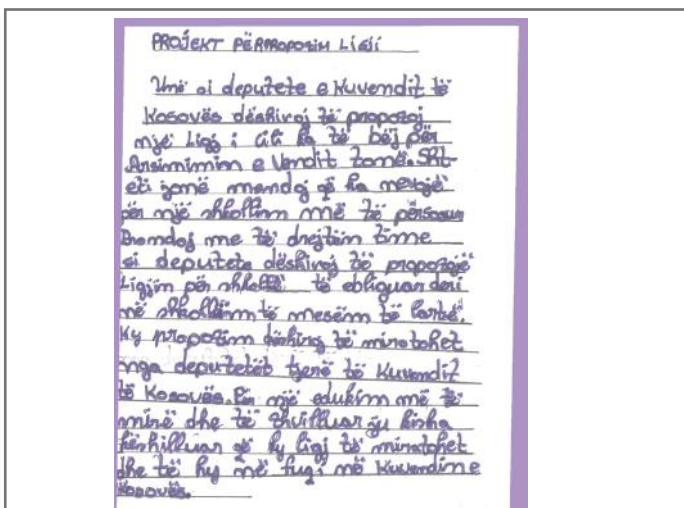 PROJEKT PËRPROPOZIM LIGJI
Unë si deputete e Kuvendit të
Kosovës dëshiroj të propozoj
një Ligj i cili ka të bëj për
Arsimimin e Vendit tonë. Sht-
eti jonë mendoj që ka nevojë
për një shkollim më të përsosur
Prandaj me të drejtën time
si deputete dëshiroj të propozojë
Ligjin për shkollë të obliguar deri
në shkollimin të mesëm të lartë.
Ky propozim dëshiroj të miratohet
nga deputetët tjerë të Kuvendit
të Kosovës. Për një edukim më të
mirë dhe të zhvilluar ju kisha
këshilluar që ky ligj të miratohet
dhe të hy në fuqi në Kuvendin e
Kosovës.